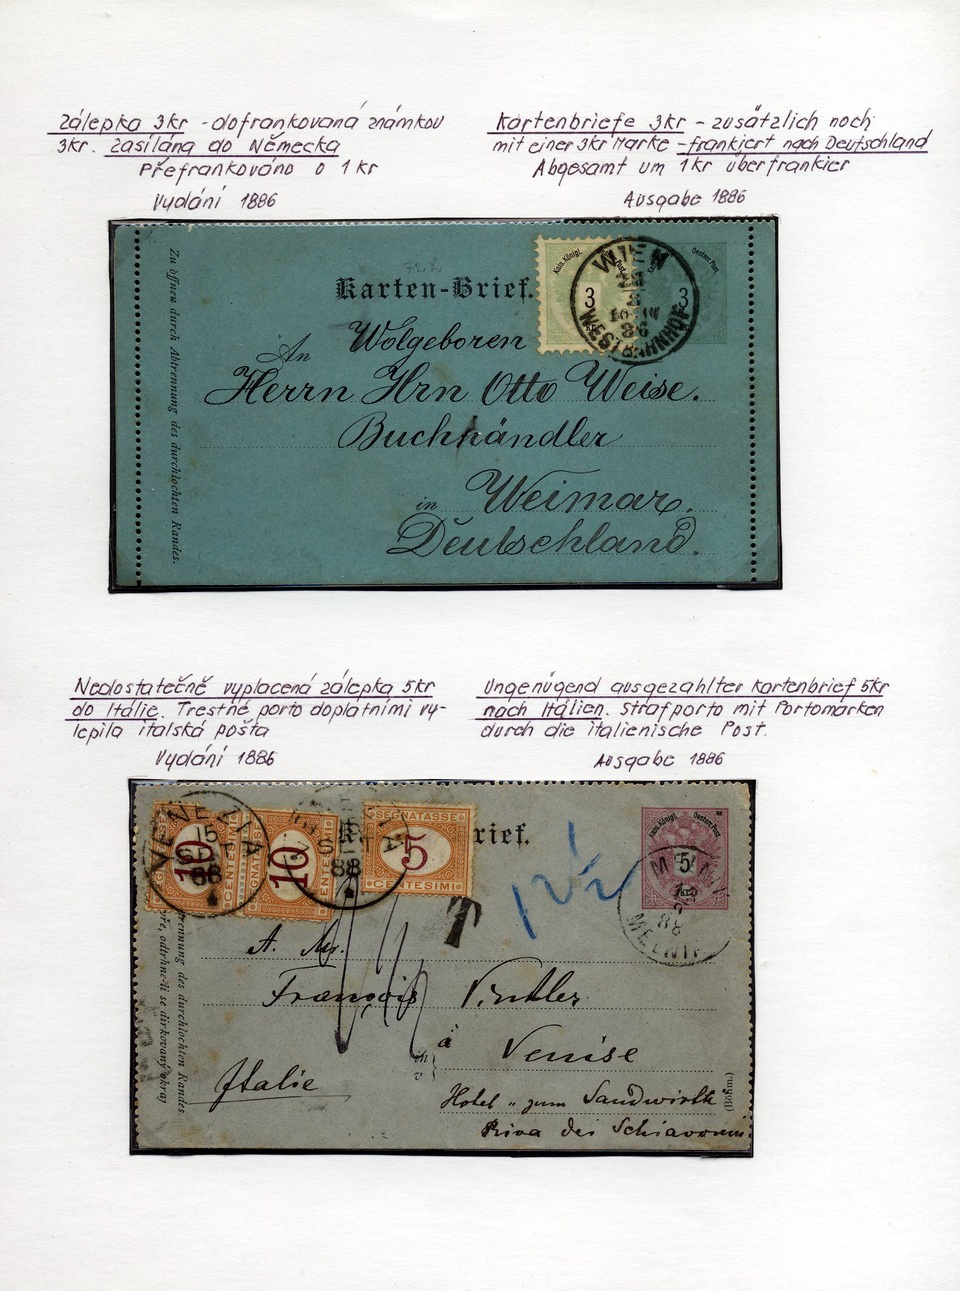 Zálepka 3kr - dofrankovaná známkou
3kr. zasílána do Německa
Přefrankováno o 1kr
Vydání 1886
Kartenbriefe 3kr - zusätzlich noch
mit einer 3kr Marke - frankiert nach Deutschland
Abgesamt um 1kr überfrankier
Ausgabe 1886
Zu öffnen durch Abtrennung des durchlochten Randes.
Karten-Brief.
Kais. Königl. Oesterr. Post.
3 3
WIEN
WESTBAHNHOF
86
An Wolgeboren
Herrn Hrn Otto Weise.
Buchhändler
in Weimar.
Deutschland.
Nedostatečně vyplacená zálepka 5kr
do Itálie. Trestné porto doplatními vy-
lepila italská pošta
Vydání 1886
Ungenügend ausgezahlter Kartenbrief 5kr
nach Italien. Strafporto mit Portomarken
durch die italienische Post.
Ausgabe 1886
VENEZIA
15
88
10
CENTESIMI
10
88
SEGNATASSE
5
CENTESIMI
rief.
Kais. Königl. Oesterr. Post.
5
88
T
trennung des durchlochten Randes
odtrhne-li se dirkovaný okraj
François Vintler
à Venise
Italie
Hotel "zum Sandwirth
Riva dei Schiavoni
(Böhm.)